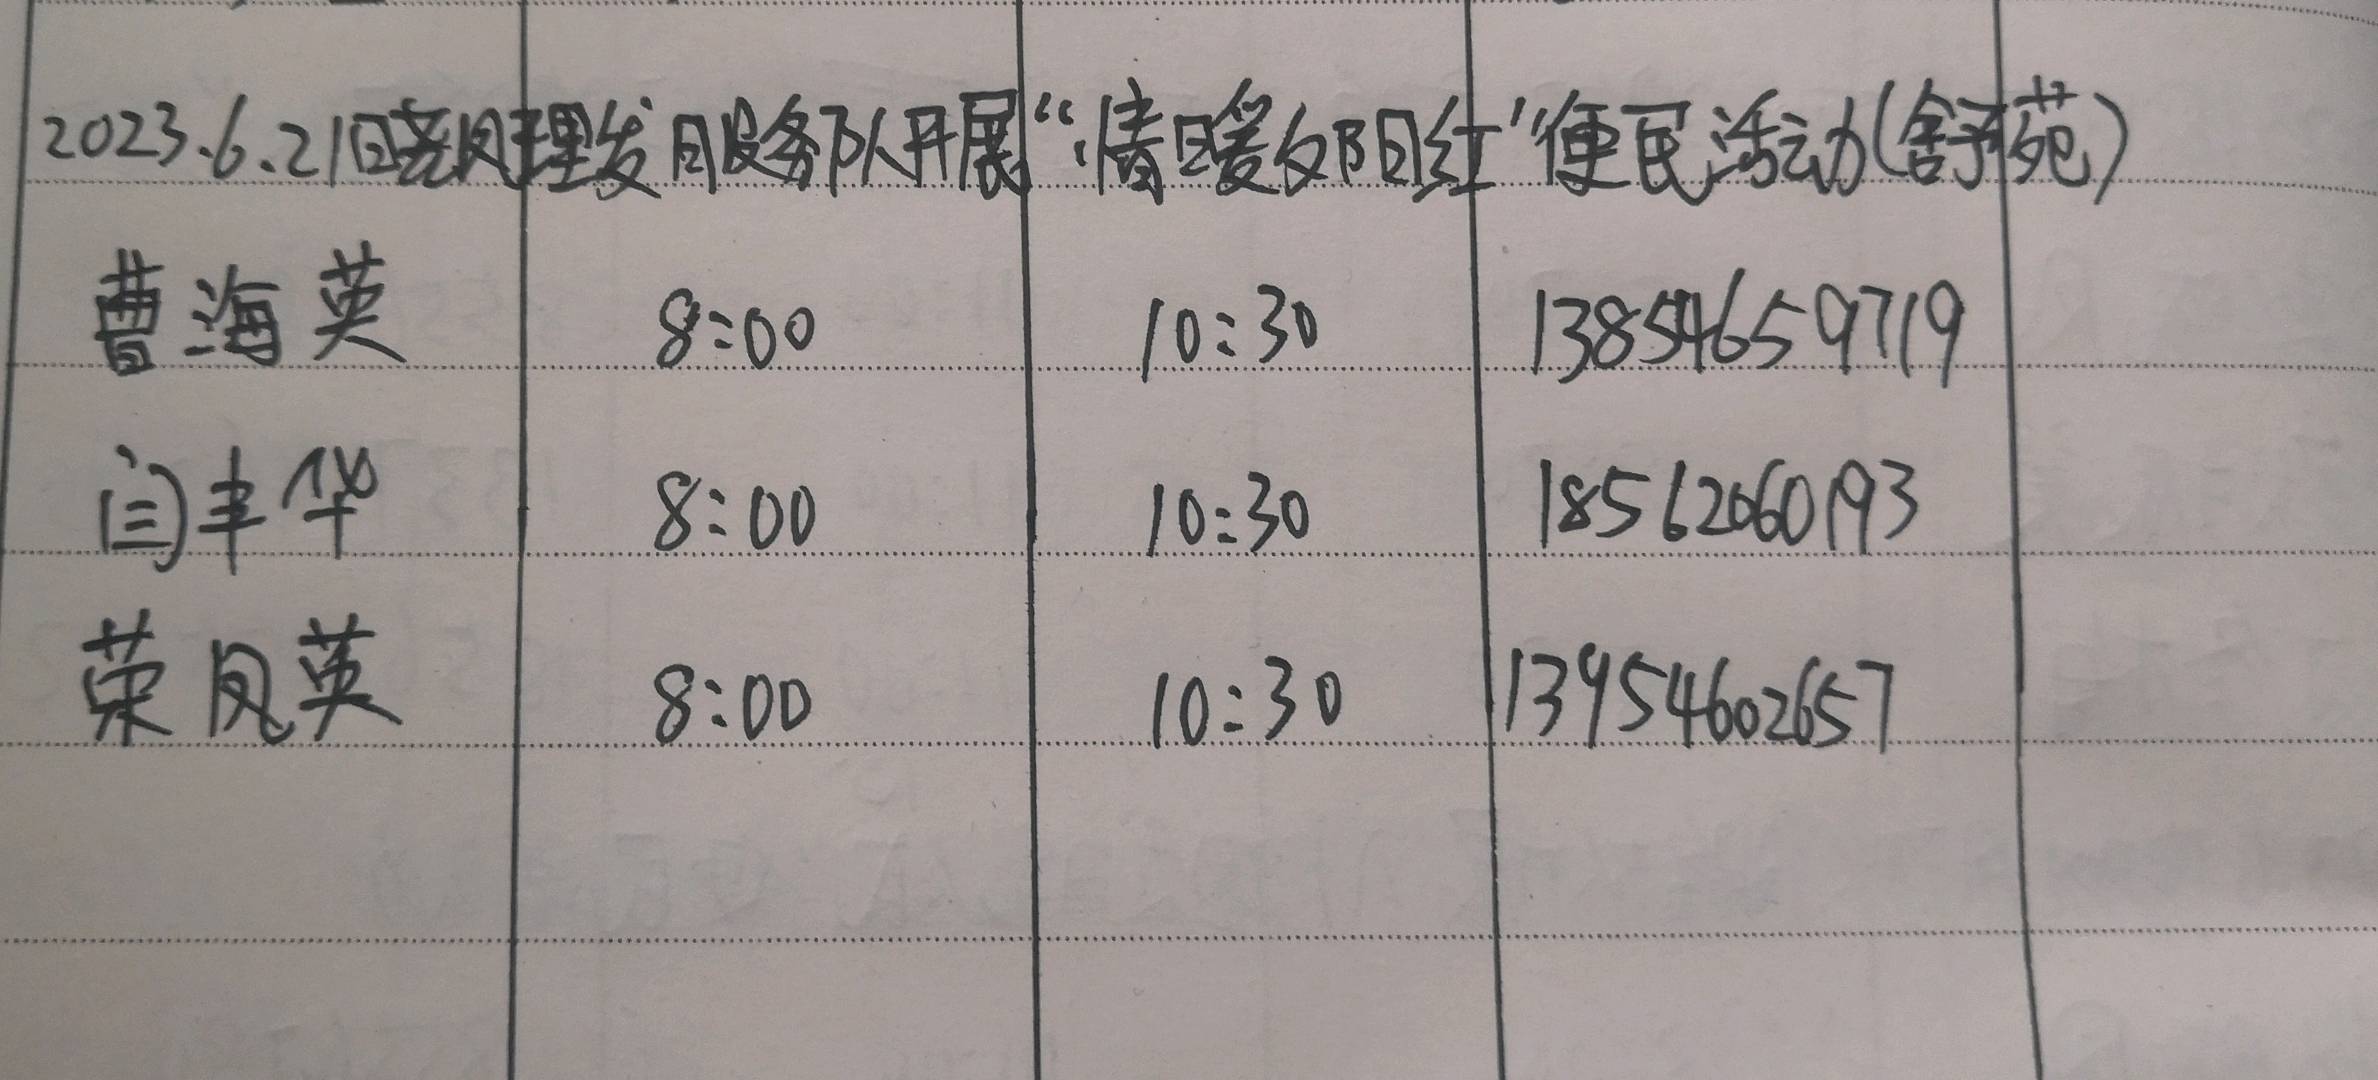 2023.6.21日晓凤理发服务队开展“情暖夕阳红”便民活动(舒苑)
曹海英 8:00 10:30 13854659719
闫丰华 8:00 10:30 18562060193
荣凤英 8:00 10:30 13954602657